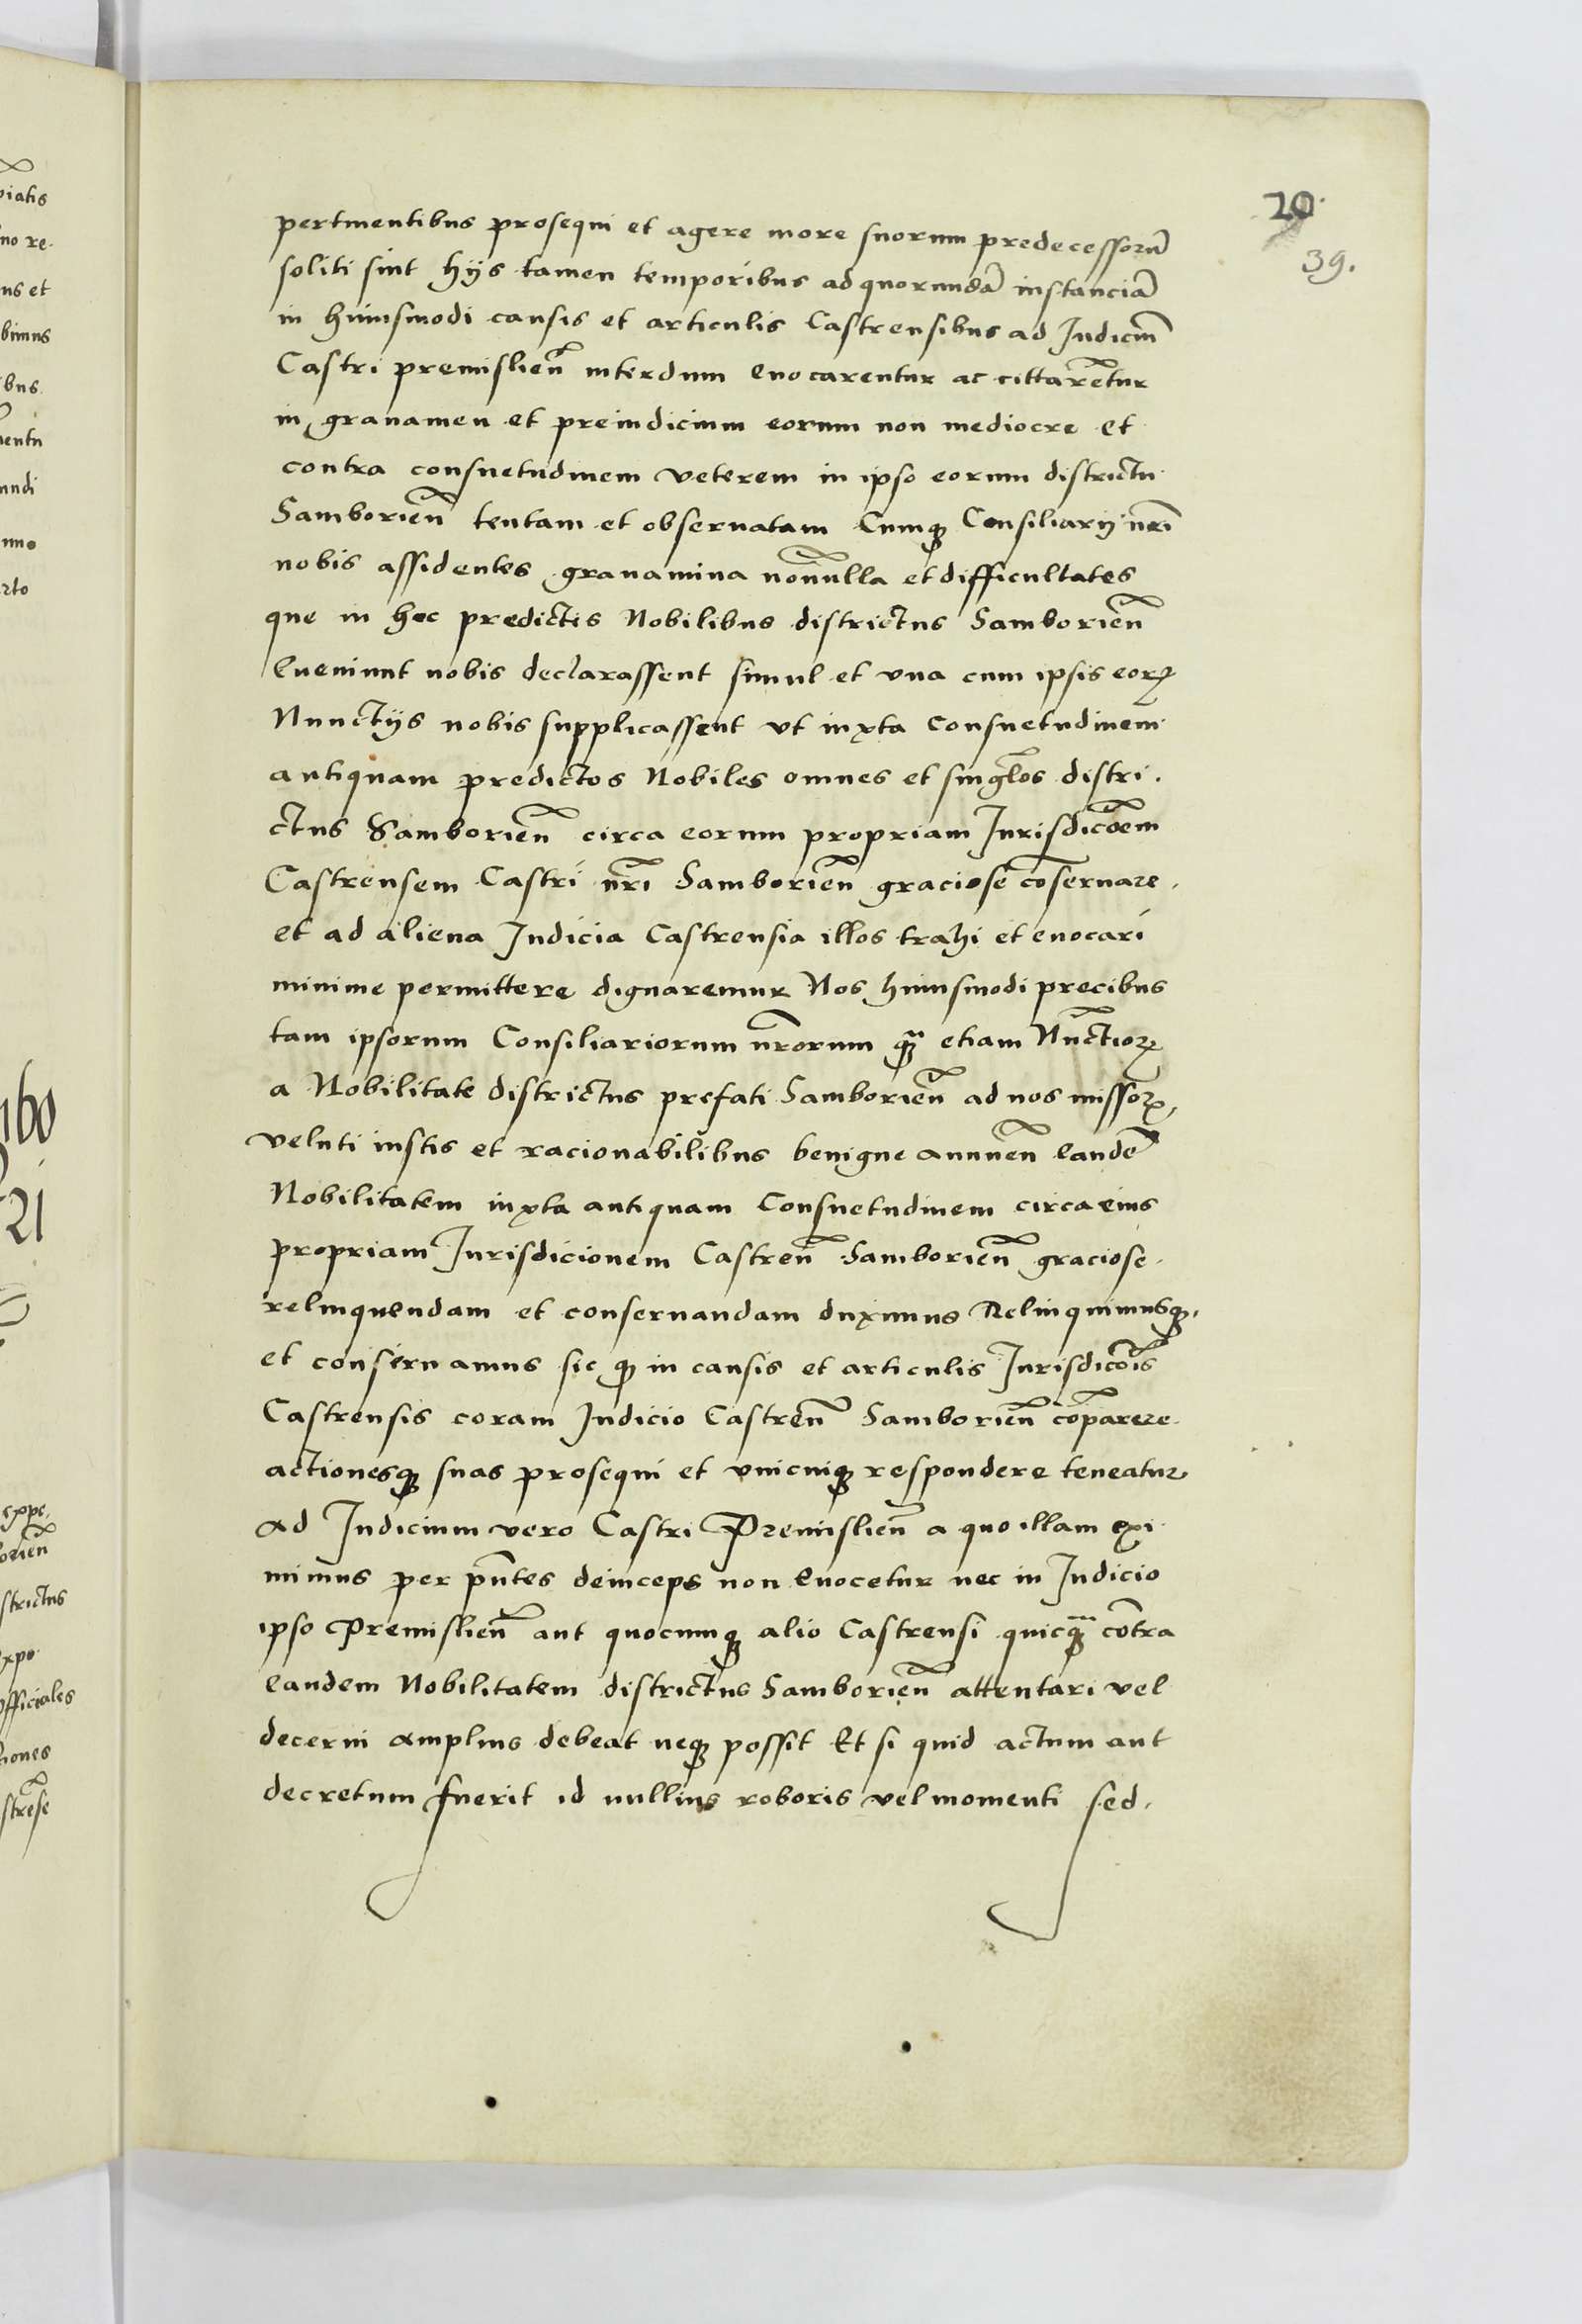 20.
39.
pertinentibus prosequi et agere more suorum predecessorũ
soliti sint hijs tamen temporibus ad quorundã instanciã
in huiusmodi causis et articulis Castrensibus ad Iudiciũ
Castri premislieñ interdum Euocarentur ac cittarẽtur
in grauamen et preiudicium eorum non mediocre et
contra consuetudinem veterem in ipso eorum districtu
Samborieñ tentam et obseruatam Cumqȝ Consiliarij nr̃i
nobis assidentes grauamina noñulla et difficultates
que in hoc predictis Nobilibus districtus Samborieñ
Eueniunt nobis declarassent simul et vna cum ipsis eorꝝ
Nunctijs nobis supplicassent vt iuxta Consuetudinem
antiquam predictos Nobiles omnes et singl̃os distri.
ctus Samborieñ circa eorum propriam Iurisdicõem
Castrensem Castri nr̃i Samborieñ graciose cõseruare.
et ad aliena Iudicia Castrensia illos trahi et euocari
minime permittere dignaremur Nos huiusmodi precibus
tam ipsorum Consiliariorum nr̃orum qȝ̃ etiam Nũctiorꝝ
a Nobilitate districtus prefati Samborieñ ad nos missorꝝ,
veluti iustis et racionabilibus benigne annueñ Eandẽ
Nobilitatem iuxta antiquam Consuetudinem circa eius
propriam Iurisdicionem Castreñ Samborieñ graciose.
relinquendam et conseruandam duximus Relinquimusqȝ.
et conseruamus sic qȝ in causis et articulis Iurisdicõis
Castrensis coram Iudicio Castreñ Samborieñ cõparere.
actionesqȝ suas prosequi et vnicuiqȝ respondere teneatur
Ad Iudicium vero Castri Premislieñ a quo illam exi
mimus per pñtes deinceps non Euocetur nec in Iudicio
ipso Premislieñ aut quocumqȝ alio Castrensi quicqȝ̃ cõtra
Eandem Nobilitatem districtus Samborieñ attentari vel
decerni amplius debeat neqȝ possit Et si quid actum aut
decretum fuerit id nullius roboris vel momenti sed.